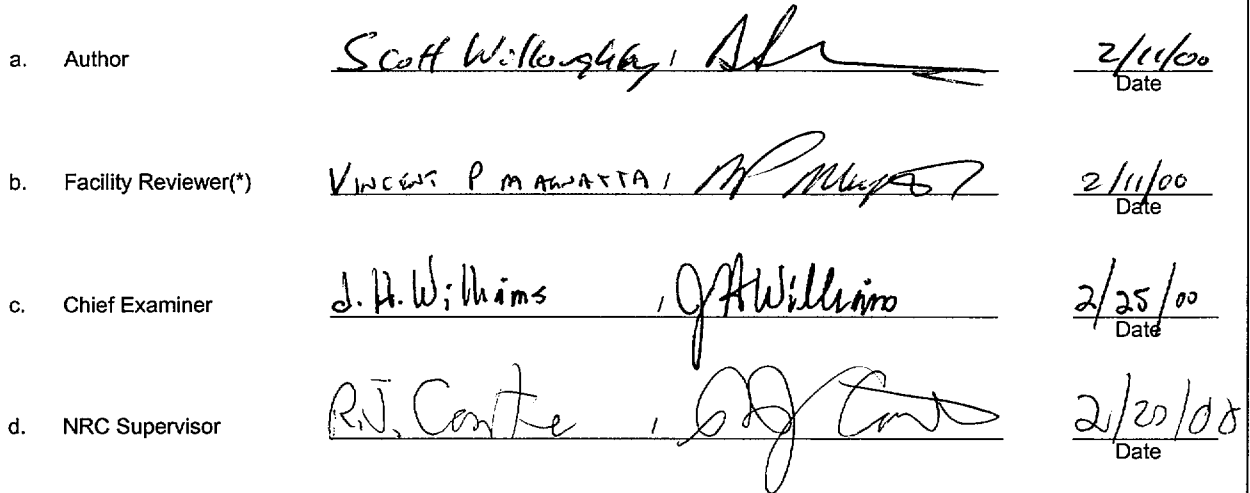 a. Author Scott Willoughby, 2/11/00
Date
b. Facility Reviewer(*) VINCENT P MAGNATTA, 2/11/00
Date
c. Chief Examiner J. H. Williams, JHWilliams 2/25/00
Date
d. NRC Supervisor R.J.
Date